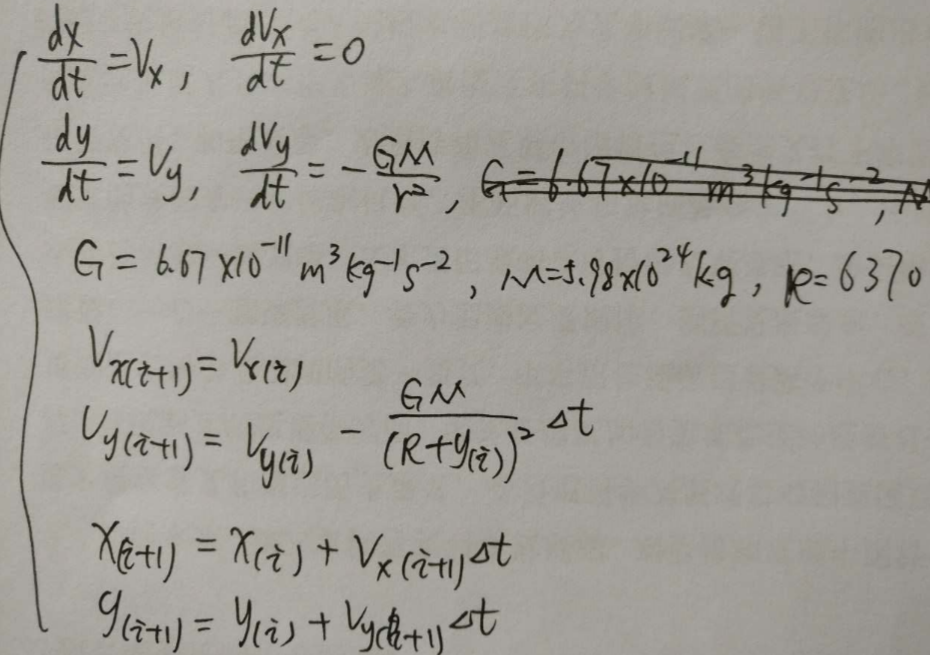 dx/dt = Vx, dVx/dt = 0
dy/dt = Vy, dVy/dt = - GM/r², G = 6.67×10⁻¹¹ m³kg⁻¹s⁻², M
G = 6.67×10⁻¹¹ m³kg⁻¹s⁻², M=5.98×10²⁴kg, R=6370
Vx(i+1) = Vx(i)
Vy(i+1) = Vy(i) - GM/(R+y(i))² Δt
x(i+1) = x(i) + Vx(i+1)Δt
y(i+1) = y(i) + Vy(i+1)Δt